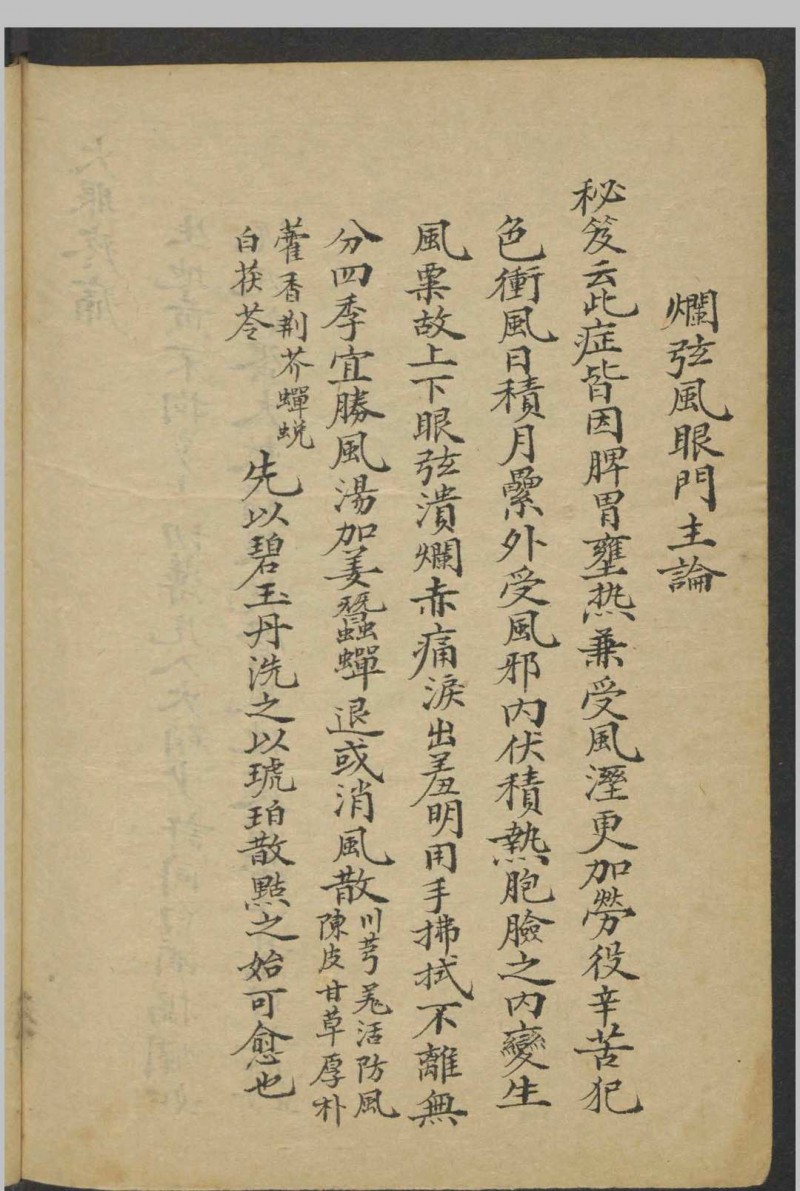 爛弦風眼門主論
秘笈云此症皆因脾胃壅热兼受風溼更加勞役辛苦犯
色衝風日積月纍外受風邪内伏積熱胞臉之内變生
風粟故上下眼弦潰爛赤痛淚出羞明用手拂拭不離無
分四季宜勝風湯加姜蠶蟬退或消風散
川芎羌活防風
陳皮甘草厚朴
藿香荆芥蟬蜕
白茯苓
先以碧玉丹洗之以琥珀散點之始可愈也